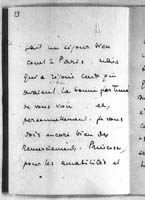 fait un séjour bien
court à Paris, mais
qui a réjoui ceux qui
avaient la bonne fortune
de vous voir et,
personnellement, je vous
dois encore bien des
remerciements, Princesse,
pour les amabilités et